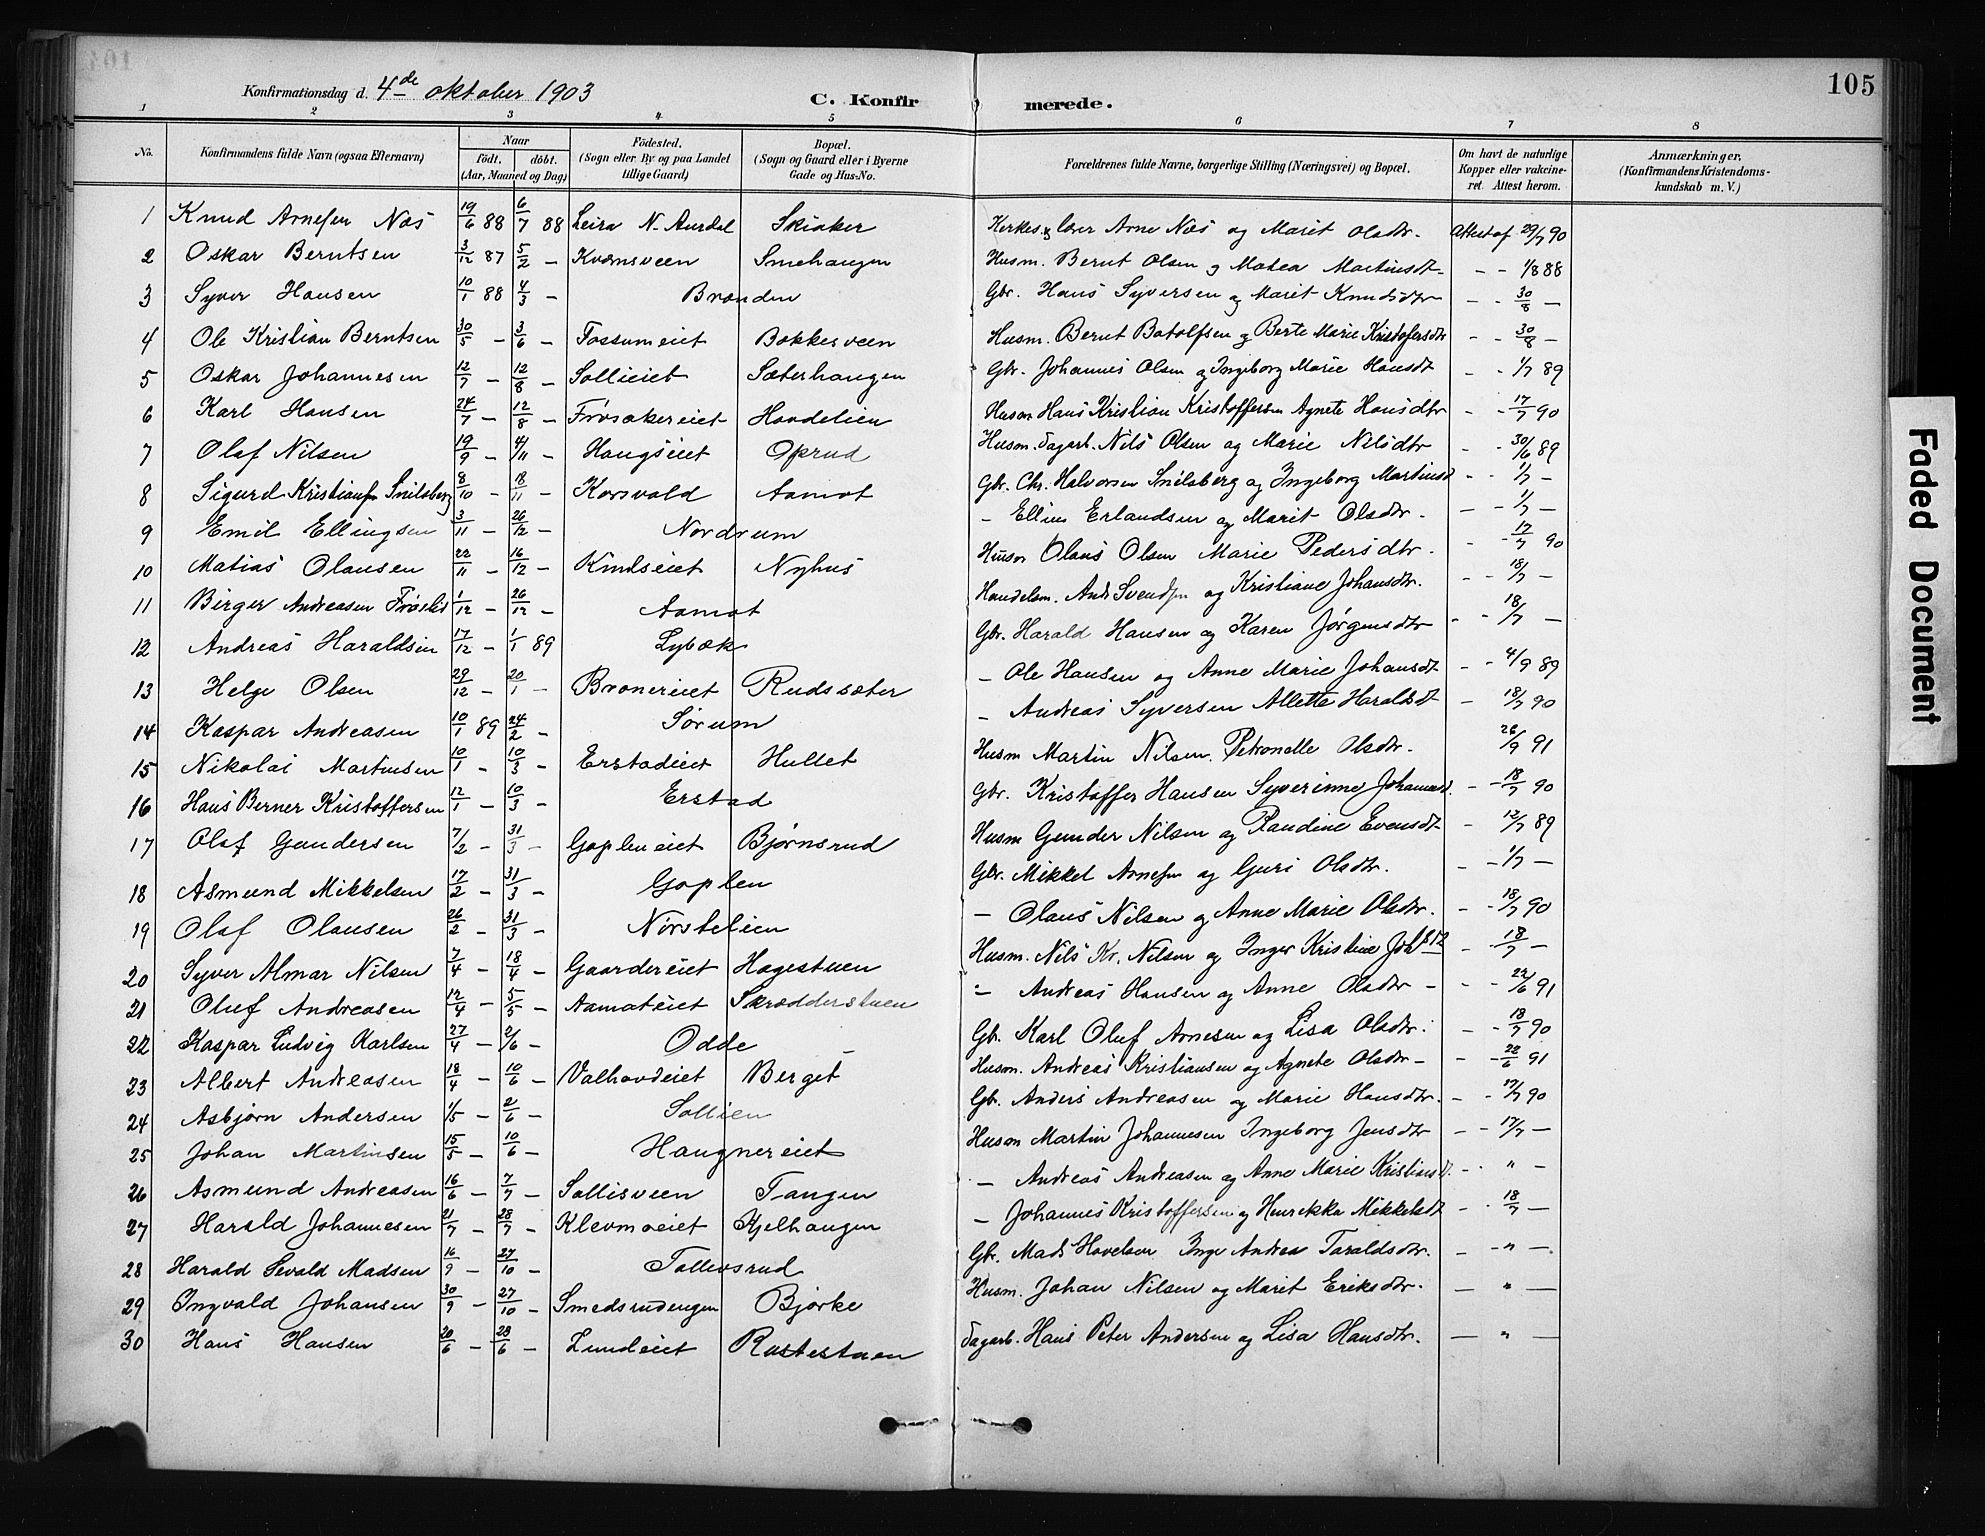 105
Konfirmationsdag d. 4de oktober 1903
C. Konfirmerede.
1 2 3 4 5 6 7 8
No. Konfirmandens fulde Navn (ogsaa Efternavn) Naar født, døbt. (Aar, Maaned og Dag) Fødested. (Sogn eller By og paa Landet tillige Gaard) Bopæl. (Sogn og Gaard eller i Byerne Gade og Hus-No. Forældrenes fulde Navne, borgerlige Stilling (Næringsvei) og Bopæl. Om havt de naturlige Kopper eller vakcineret. Attest herom. Anmærkninger. (Konfirmandens Kristendomskundskab m. V.)
1 Knud Arnesen Næs 19/6 88 6/7 88 Leira N. Aurdal Skiaker lærer Arne Næs og Marit Olsdtr. Attest af 29/7 90
2 Oskar Berntsen 3/12 87 5/2 - Kværnsveen Smehaugen Husm. Bernt Olsen og Matea Martinsdt - - 1/8 88
3 Syver Hansen 10/1 88 4/3 - Branden Gbr. Hans Syversen og Marit Knudsdtr - - 30/8 -
4 Ole Kristian Berntsen 30/5 - 3/6 - Fossumeiet Bakkesveen Husm. Bernt Botolfsen og Berte Marie Kristofersdtr - - 30/8 -
5 Oskar Johannesen 12/7 - 12/8 - Sollieiet Sæterhaugen Gbr. Johannes Olsen og Ingeborg Marie Hansdt - - 1/7 89
6 Karl Hansen 24/7 - 12/8 - Frøsakereiet Hovdelien Husm Hans Kristian Kristoffersen Agnete Hansdtr - - 17/7 90
7 Olaf Nilsen 19/9 - 4/11 - Haugseiet Oprud Husm. Dagarb. Nils Olsen og Marie Nilsdtr - - 30/6 89
8 Sigurd Kristians Snilsberg 8/10 - 18/11 - Korsvold Aamot Gbr. Chr. Halvorsen Snilsberg og Ingeborg Martinsd - - 1/7 -
9 Emil Ellingsen 3/11 - 26/12 - Nordrum - Elling Erlandsen og Marit Olsdtr. - - 1/7 -
10 Matias Olausen 22/11 - 16/12 - Kindseiet Nyhus Husm Olaus Olsen Marie Pedersdtr. - - 17/7 90
11 Birger Andreasen Frøslid 1/12 - 26/12 - Aamot Handelsm. And. Svendsen og Kristiane Johansdtr. - - 18/7 -
12 Andreas Haraldsen 17/12 - 1/1 89 Lybæk Gbr. Harald Hansen og Karen Jørgensdtr - - 18/7 -
13 Helge Olsen 29/12 - 20/1 - Bronereiet Rudssæter - Ole Hansen og Anne Marie Johansdt - - 4/9 89
14 Kaspar Andreasen 10/1 89 24/2 - Sørum - Andreas Syversen Allette Haraldsdt - 18/7 90
15 Nikolai Martinsen 10/1 - 10/3 - Erstadeiet Hullet Husm Martin Nilsen. Petronelle Olsdtr. 26/9 91
16 Hans Berner Kristoffersen 12/1 - 10/3 - Erstad Gbr. Kristoffer Hansen Syverinne Johannesd. - - 18/7 90
17 Olaf Gundersen 7/2 - 31/3 - Gopleneiet Bjørnsrud Husm Gunder Nilsen og Randine Evensdt - 12/7 89
18 Asmund Mikkelsen 17/2 - 31/3 - Goplen Gbr. Mikkel Arnesen og Guri Olsdtr. - - 1/7 -
19 Olaf Olausen 26/2 - 31/3 - Nørstelien - Olaus Nilsen og Anne Marie Olsdtr. - - 18/7 90
20 Syver Almar Nilsen 7/4 - 18/4 - Gaardereiet Hagestuen Husm. Nils Kr. Nilsen og Inger Kristine Johsdtr - - 18/7 -
21 Oluf Andreasen 12/4 - 5/5 - Aamoteiet Skrædderstuen - Andreas Hansen og Anne Olsdtr - - - 22/6 91
22 Kaspar Ludvig Karlsen 27/4 - 2/6 - Odde Gb. Karl Oluf Arnesen og Lisa Olsdtr. - - 18/7 90
23 Albert Andreasen 18/4 - 10/6 - Valhovdeiet Berget Husm. Andreas Kristiansen og Agnete Olsdtr - - - 22/6 91
24 Asbjørn Andersen 1/5 - 2/6 - Sollien Gb. Anders Andreasen og Marie Hansdtr. - - 17/7 90
25 Johan Martinsen 15/5 - 10/6 - Haugnereiet Husm Martin Johannesen Ingeborg Jensdtr - - 17/7 -
26 Asmund Andreasen 16/6 - 7/7 - Sollisveen Tangen - Andreas Andreasen og Anne Marie Kristiansd. - - " -
27 Harald Johannesen 21/7 - 28/7 - Klevmoeiet Kjelhaugen - Johannes Kristoffersen og Henrekka Mikkelsdt - - 18/7 -
28 Harald Sevald Madsen 16/9 - 27/10 - Tollevsrud Gb. Mads Hovelsen Inge Andrea Taraldsdtr. - - " -
29 Ingvald Johansen 30/9 - 27/10 - Smedsrudengen Bjørke Husm. Johan Nilsen og Marit Eriksdtr. - " -
30 Hans Hansen 20/6 - 28/6 - Lundeiet Rastestuen Dagarb. Hans Peter Andersen og Lisa Hansdtr. - " -
Faded Document